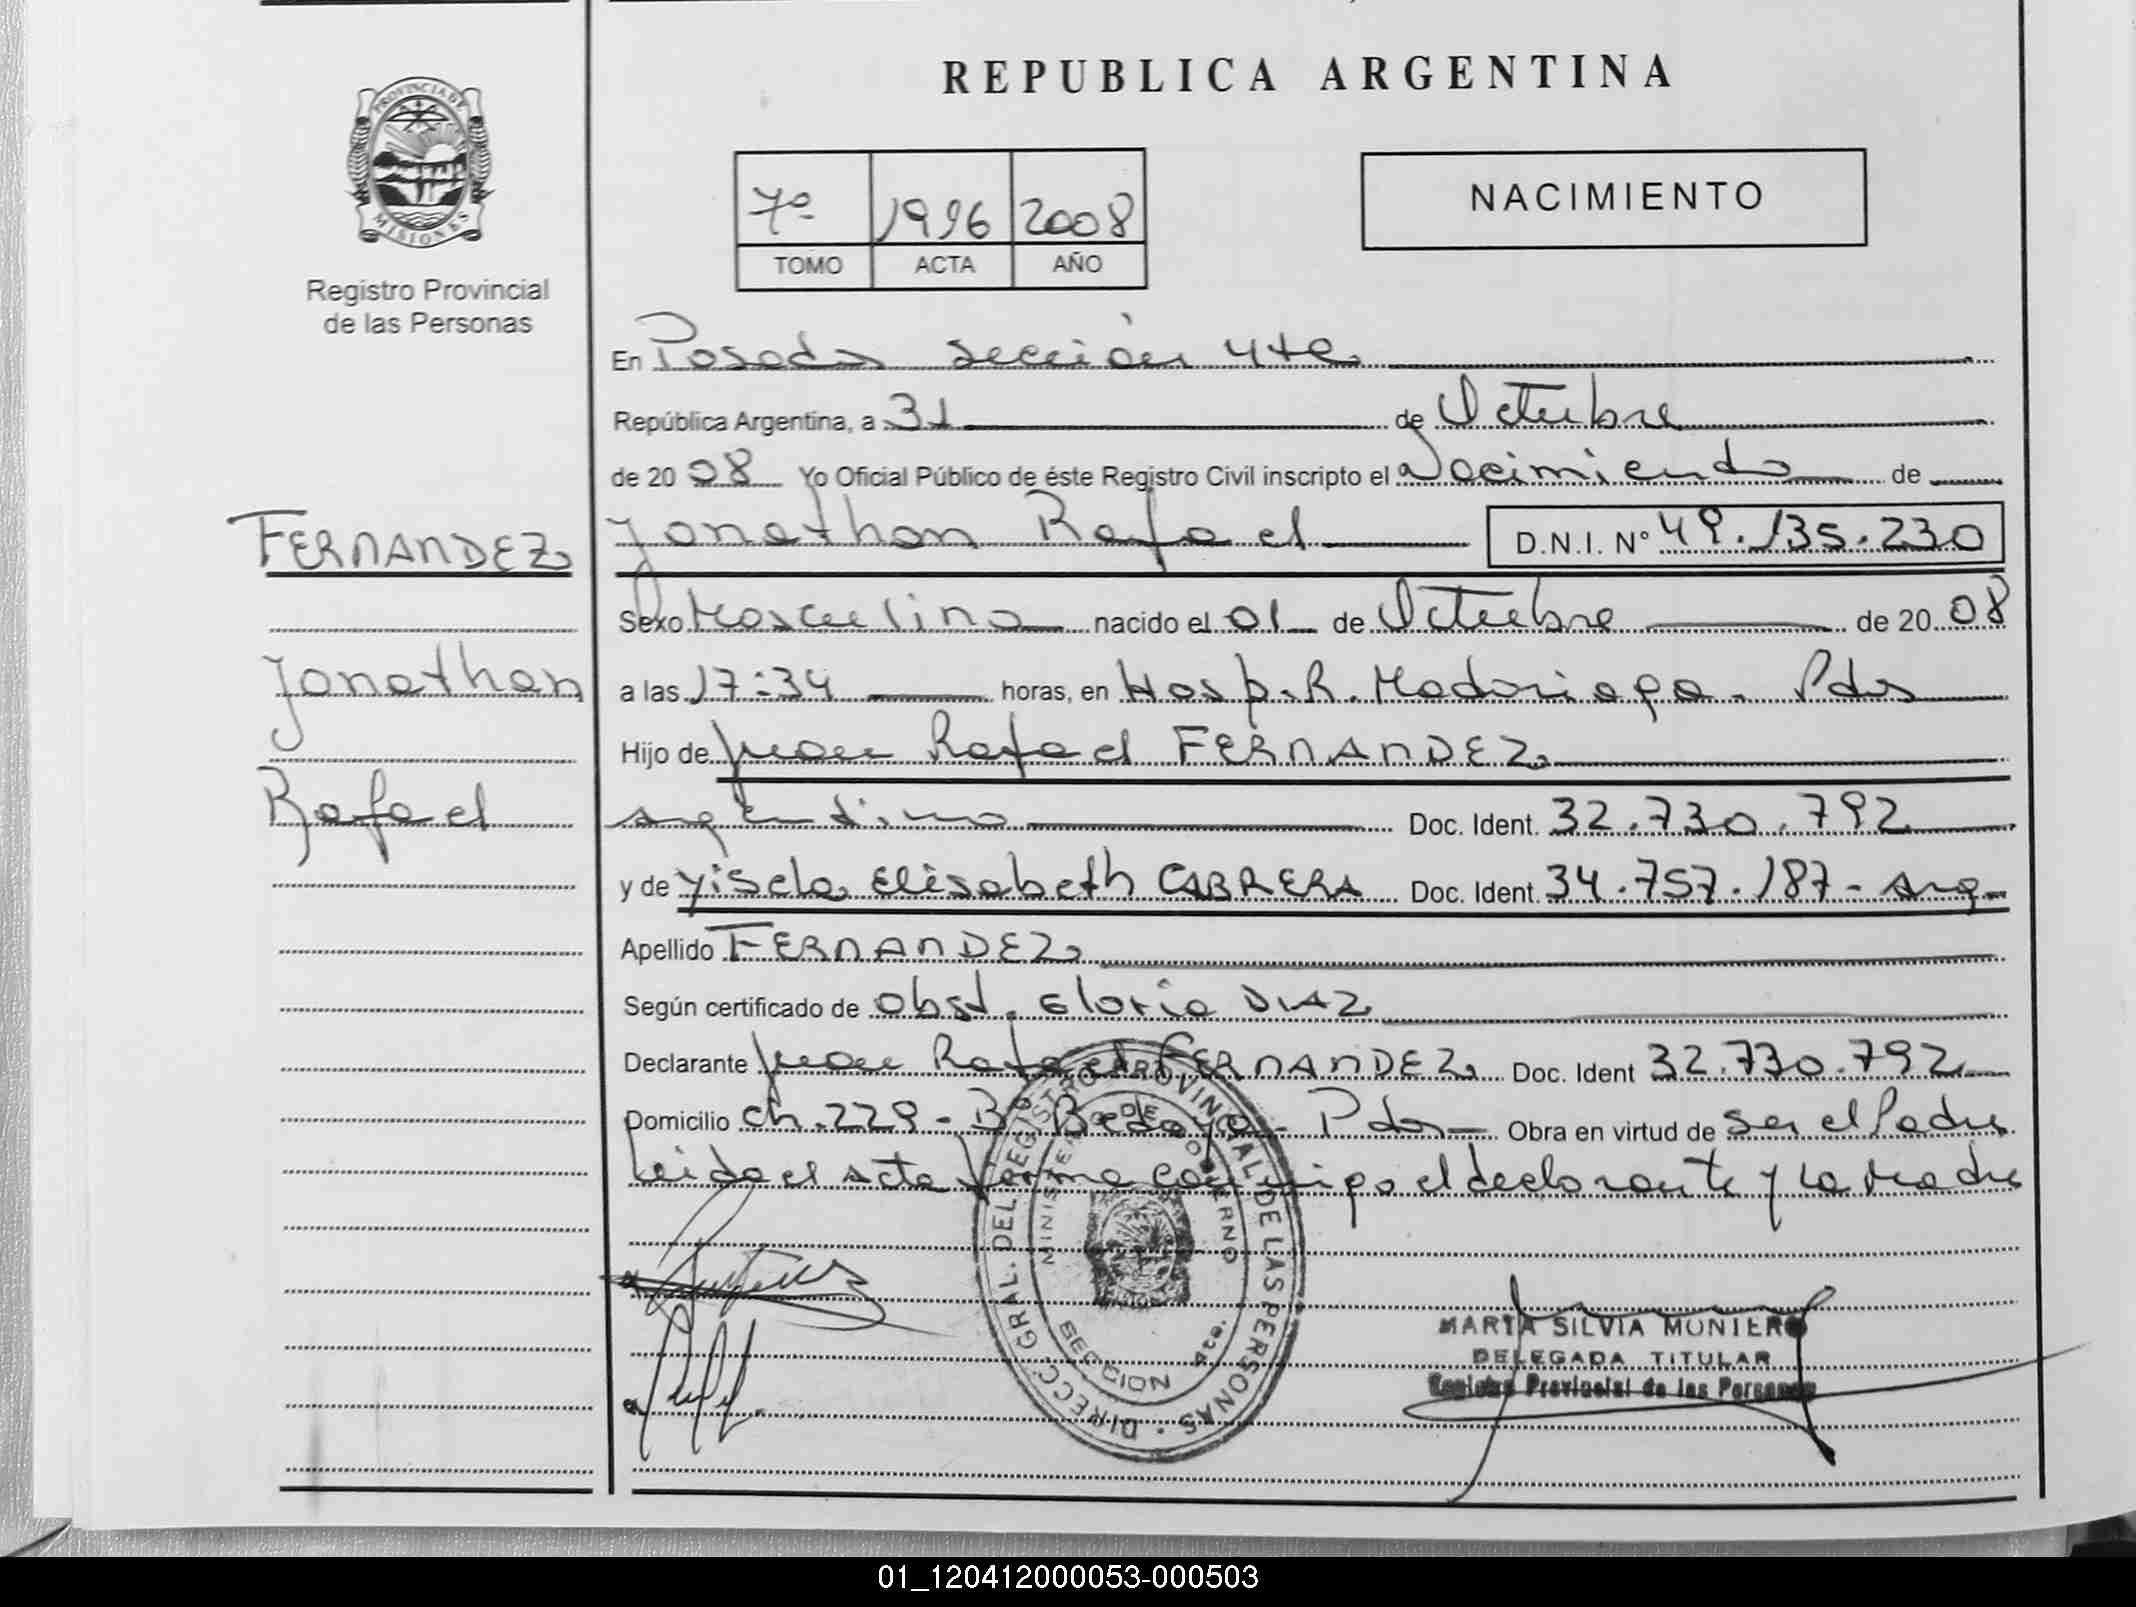 REPUBLICA ARGENTINA
PROVINCIA DE
MISIONES
Registro Provincial
de las Personas
7º 1996 2008
TOMO ACTA AÑO
NACIMIENTO
En Posadas sección 4ta
República Argentina, a 31 de Octubre
de 2008 Yo Oficial Público de éste Registro Civil inscripto el Nacimiento de
FERNANDEZ
Jonathan Rafael D.N.I. Nº 49.135.230
Sexo Masculino nacido el 01 de Octubre de 2008
Jonathan
a las 17:34 horas, en Hosp. R. Madariaga - Pdas
Hijo de Juan Rafael FERNANDEZ
Rafael
argentino Doc. Ident. 32.730.792
y de Yisela Elisabeth CABRERA Doc. Ident. 34.757.187 - arg.
Apellido FERNANDEZ
Según certificado de Obst. Gloria DIAZ
Declarante Juan Rafael FERNANDEZ Doc. Ident 32.730.792
Domicilio Ch. 229 - Bº Bedoya - Pdas Obra en virtud de ser el Padre
Leida el acta firma conmigo el declarante y la madre
DIRECC. GRAL. DEL REGISTRO PROVINCIAL DE LAS PERSONAS
MINISTERIO DE GOBIERNO
SECCION 4ta.
MARTA SILVIA MONTERO
DELEGADA TITULAR
Registro Provincial de las Personas
01_120412000053-000503